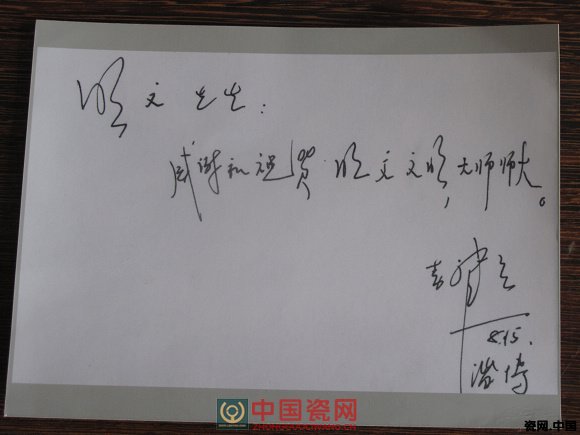 明文先生：
感谢和祝贺 明文文明，大师师大。
8.15.
淄博
中国瓷网
ZHONGGUOCIWANG.COM
瓷网.中国